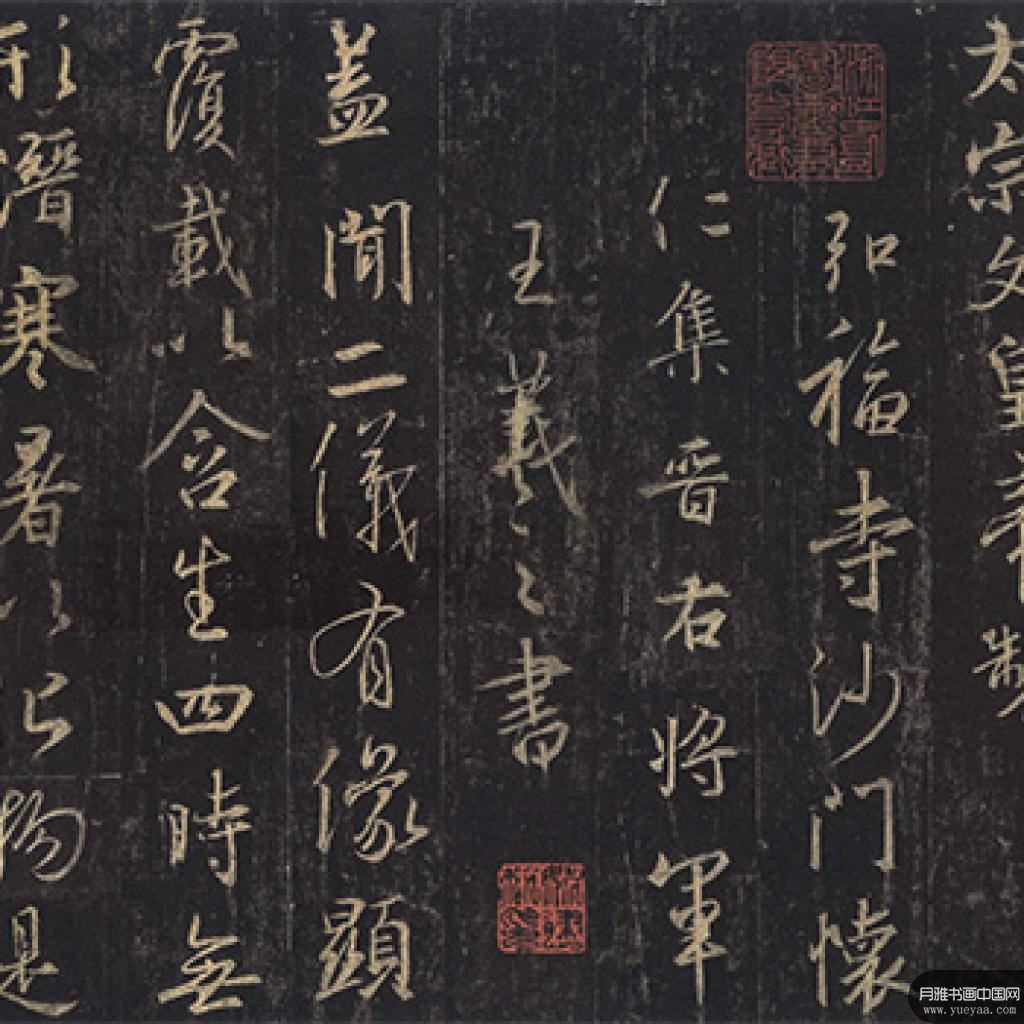 太宗文皇帝製
弘福寺沙門懷
仁集晋右將軍
王羲之書
蓋聞二儀有像顯
覆載以含生四時無
形潛寒暑以化物是
月雅书画中国网
www.yueyaa.com